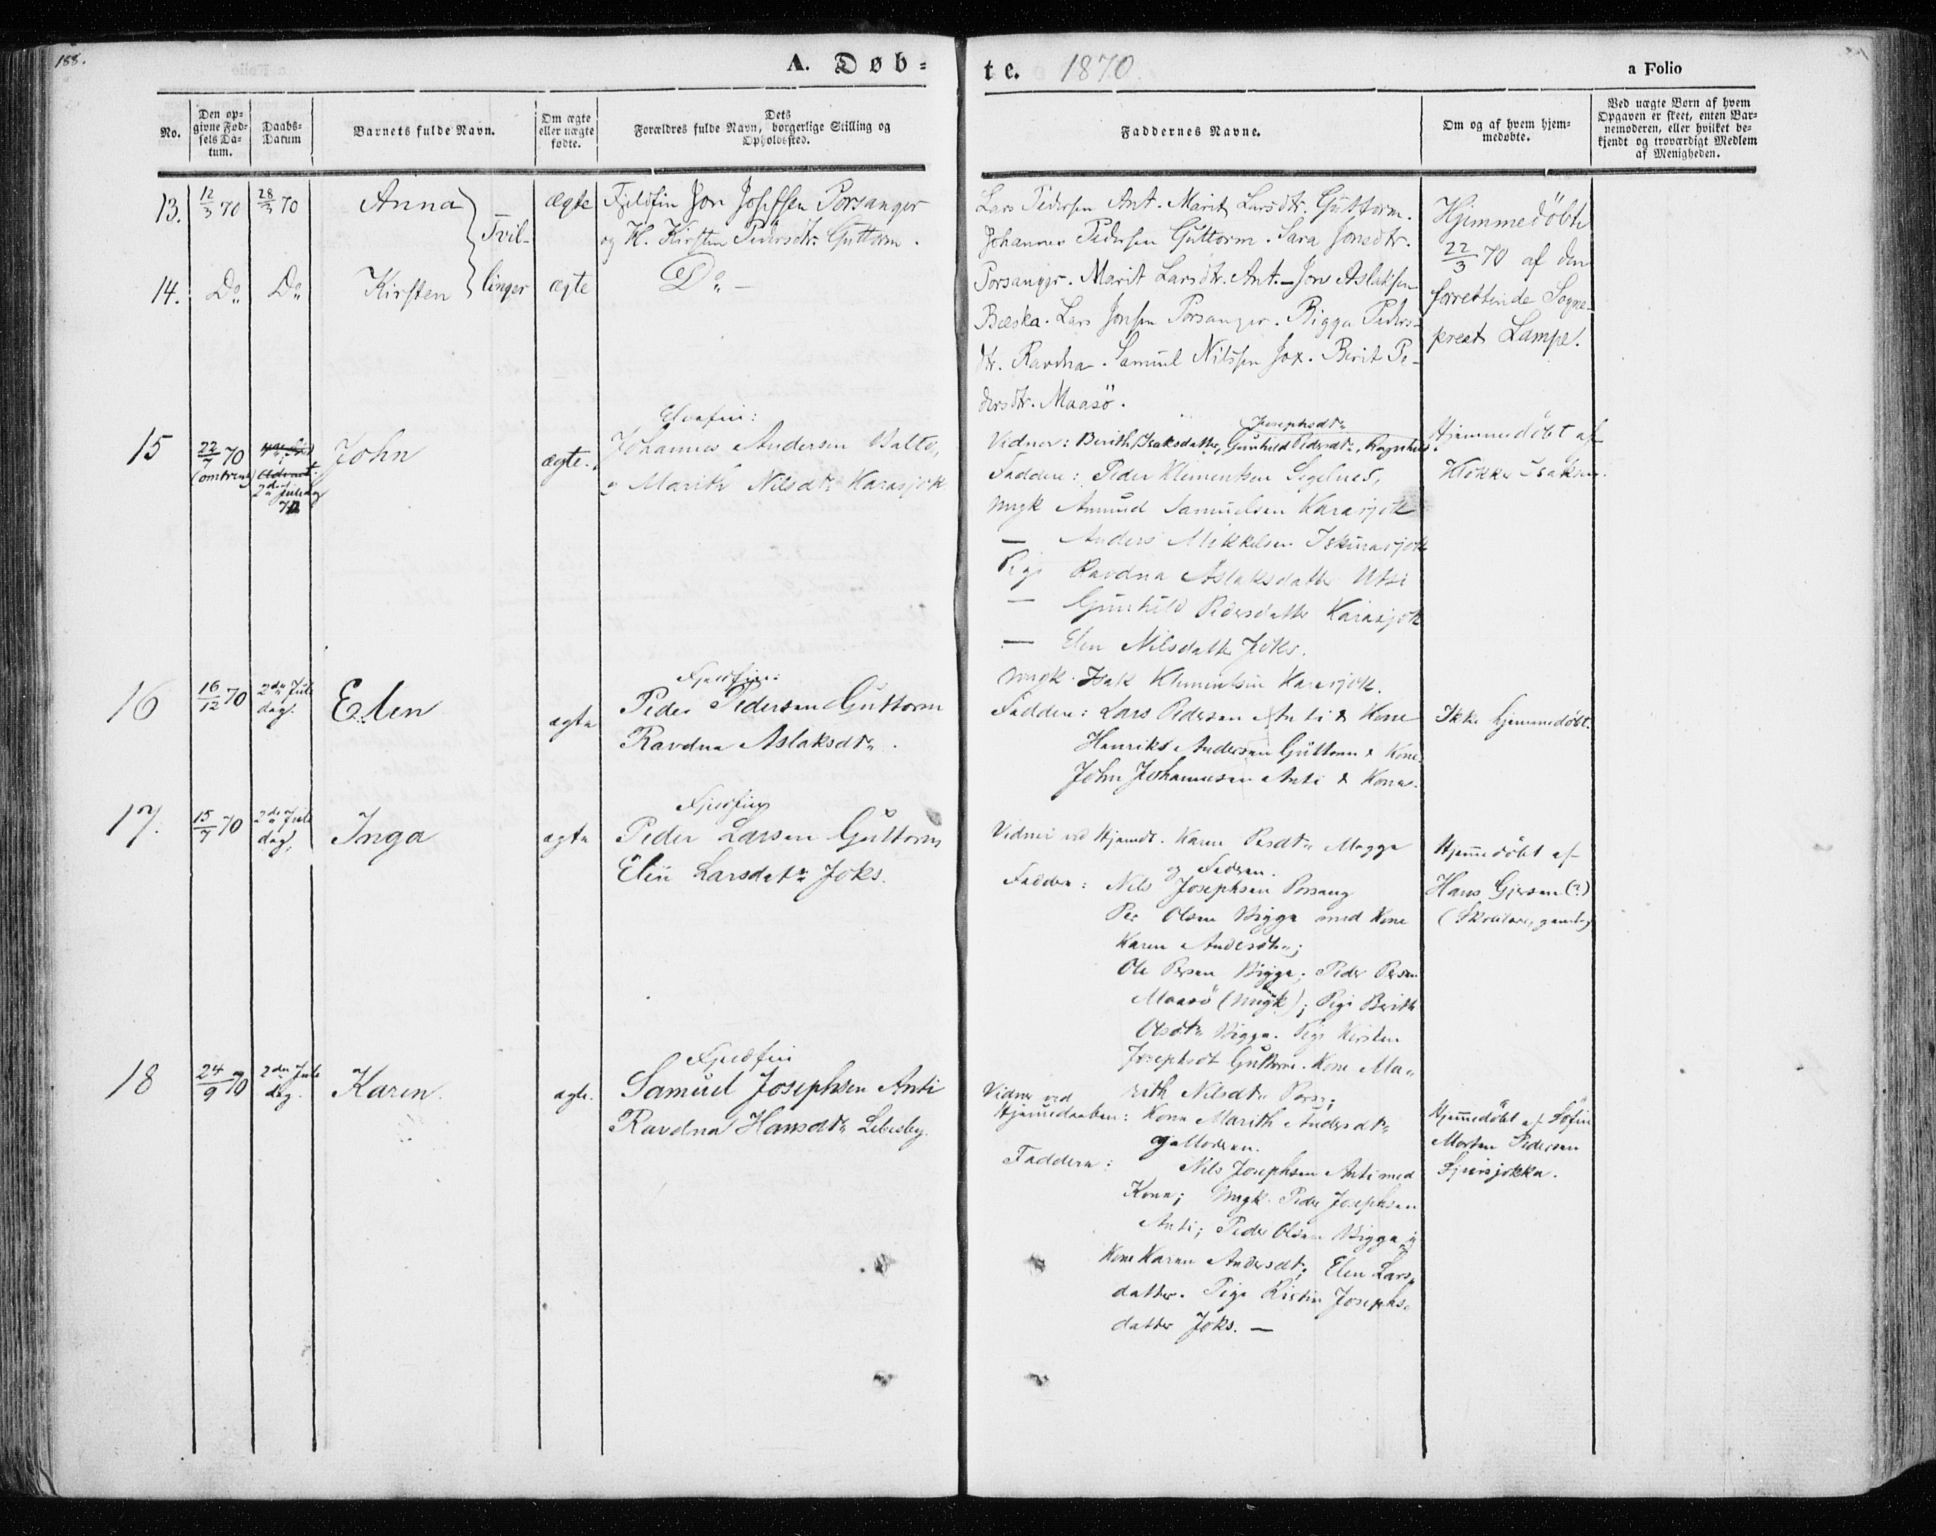 188.
A. Døb=
te. 1870.
a Folio
No.
Den op-
givne Fød-
sels Da-
tum.
Daabs-
Datum
Barnets fulde Navn.
Om ægte
eller uægte
fødte.
Dets
Forældres fulde Navn, borgerlige Stilling og
Opholdssted.
Faddernes Navne.
Om og af hvem hjem-
medøbte.
Ved uægte Børn af hvem
Opgaven er skeet, enten Bar-
nemoderen, eller hvilket be-
kjendt og troværdigt Medlem
af Menigheden.
13. 12/3 70 28/3 70 Anna Tvil- ægte Fjeldfin Jon Josefsen Porsanger
og H. Kirsten Pedersdtr. Guttorm.
14. Do Do Kirsten linger ægte Do —
Lars Pedersen Ant. Marit Larsdtr. Guttorm.
Johannes Pedersen Guttorm. Sara Jonsdtr.
Porsanger. Marit Larsdtr. Ant. – Jon Aslaksen
Bæska. Lars Jonsen Porsanger. Bigga Peders-
dtr. Ravdna. Samuel Nilssen Jox. Berit Pe-
dersdtr. Maasö.
Hjemmedöbte
22/3 70 af den
forrettende Sogne-
prest Lampe.
15 22/7 70
(omtrent) 2den Juledag
70
John
ægte.
Elvefin:
Johannes Andersen Balto,
og Marith Nilsdtr Karasjok
Josephsdtr
Vidner: Berith Isaksdatter, Gunhild Pedersdtr,
Faddere: Peder Klementsen Segelnes,
Ungk Amund Samuelsen Karasjok
— Anders Mikkelsen Iskurasjok
Pige Ravdna Aslaksdatter Utsi
— Gunhild Pedersdatter Karasjok
— Elen Nilsdatter Joks.
Ungk. Isak Klementsen Karasjok.
Hjemmedöbt af
Klokker Isaksen.
16 16/12 70 2den Jule
dag. Elen
ægte
Fjeldfin:
Peder Pedersen Guttorm
Ravdna Aslaksdtr.
Faddere: Lars Pedersen Anti & Kone
Henrik Andersen Guttorm & Kone
John Johannesen Anti & Kone.
Ikke hjemmedöbt.
17. 15/7 70 2den Jule
dag. Inga
ægte
Fjeldfin
Peder Larsen Guttorm
Elen Larsdatr Joks.
Vidner ved Hjemdt. Karen Persdtr Magga
og Faderen.
Faddere: Nils Josephsen Porsang
Per Olsen Bigga med Kone
Karen Andersdtr;
Ole Persen Bigga; Peder Persen
Maasö (Ungk); Pige Berith
Olsdtr Bigga. Pige Kirsten
Josephsdt Guttorm. Kone Ma-
rith Nilsdtr Pors;
Hjemmedöbt af
Hans Gjersen (?)
(Skolelærer, gamle)
18 24/9 70 2den Jule
dag. Karen.
ægte.
Fjeldfin
Samuel Josephsen Anti
Ravdna Hansdtr Lebesby.
Vidner ved
Hjemmedaaben: Kone Marith Andersdtr
og Moderen.
Faddere: Nils Josephsen Anti med
Kone; Ungk. Peder Josephsen
Anti; Peder Olsen Bigga og
Kone Karen Andersdtr; Elen Lars-
datter. Pige Kirstin Josephs-
datter Joks. —
Hjemmedöbt af Söfin
Morten Pedersen